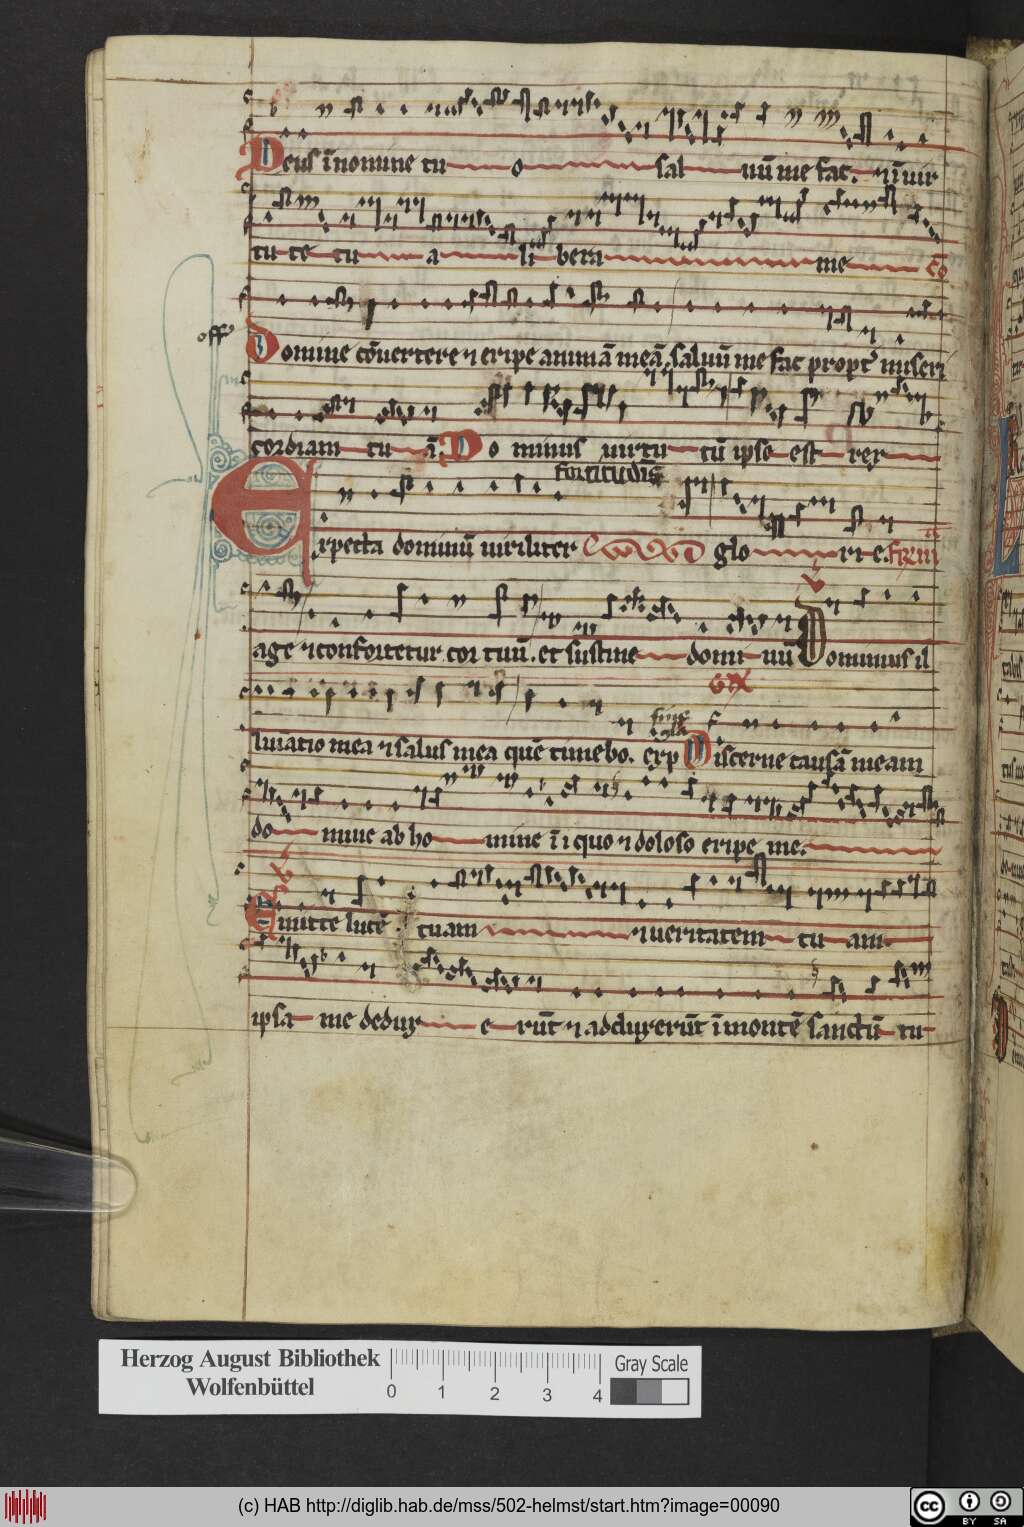 Deus ī nomine tu o sal uū me fac. ⁊ ī uir
tu te tu a li bera me Cō
off
Domine cōuertere ⁊ eripe animā meā saluū me fac propt' miseri
cordiam tu ā. Do minus uirtu tū ipse est rex
fortitudīs
Expecta dominū uiriliter glo ri e.
age ⁊ confortetur cor tuū. et sustine domi nū Dominus il
luiatio mea ⁊ salus mea quē timebo. exp Discerne causā meam
do mine ab ho mine ī i quo ⁊ doloso eripe me.
Emitte lucē tuam ⁊ ueritatem tu am.
ipsa me dedux e rūt ⁊ adduxerūt ī montē sanctū tu
Herzog August Bibliothek
Wolfenbüttel
0 1 2 3 4
Gray Scale
(c) HAB http://diglib.hab.de/mss/502-helmst/start.htm?image=00090
cc BY SA